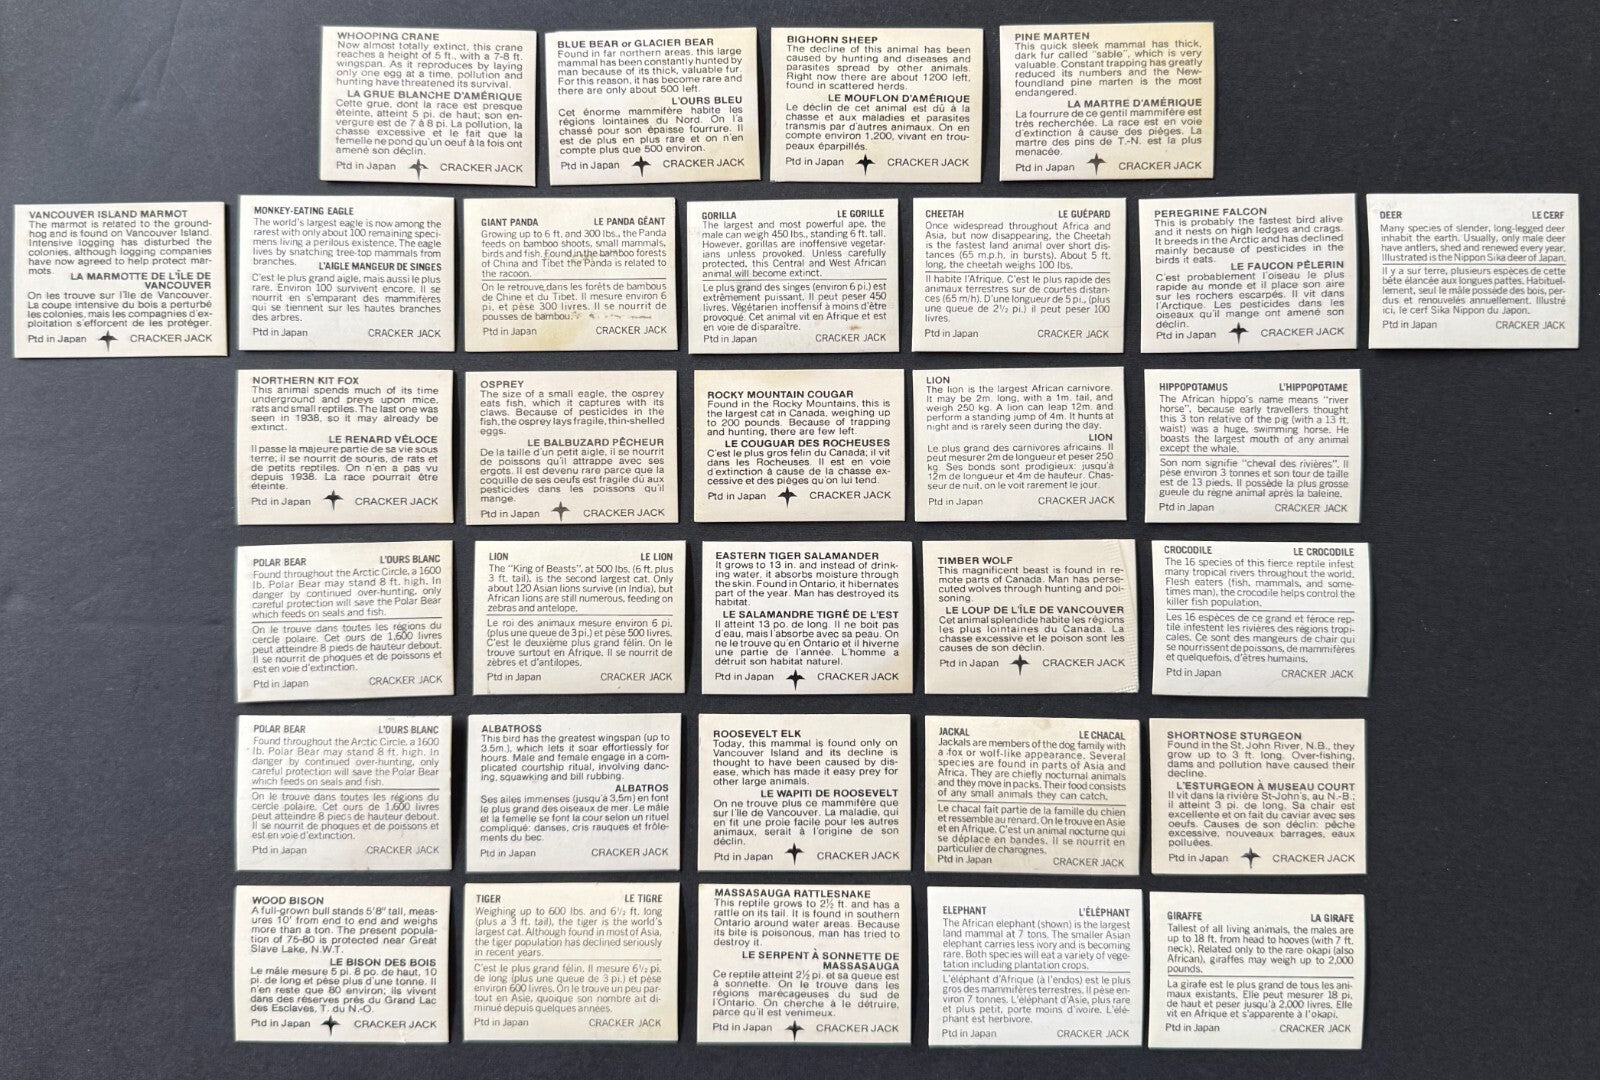 WHOOPING CRANE
Now almost totally extinct, this crane
reaches a height of 5 ft., with a 7-8 ft.
wingspan. As it reproduces by laying
only one egg at a time, pollution and
hunting have threatened its survival.
LA GRUE BLANCHE D'AMÉRIQUE
Cette grue, dont la race est presque
éteinte, atteint 5 pi. de haut; son en-
vergure est de 7 à 8 pi. La pollution, la
chasse excessive et le fait que la
femelle ne pond qu'un oeuf à la fois ont
amené son déclin.
Ptd in Japan CRACKER JACK
BLUE BEAR or GLACIER BEAR
Found in far northern areas, this large
mammal has been constantly hunted by
man because of its thick, valuable fur.
For this reason, it has become rare and
there are only about 500 left.
L'OURS BLEU
Cet énorme mammifère habite les
régions lointaines du Nord. On l'a
chassé pour son épaisse fourrure. Il
est de plus en plus rare et on n'en
compte plus que 500 environ.
Ptd in Japan CRACKER JACK
BIGHORN SHEEP
The decline of this animal has been
caused by hunting and diseases and
parasites spread by other animals.
Right now there are about 1200 left,
found in scattered herds.
LE MOUFLON D'AMÉRIQUE
Le déclin de cet animal est dû à la
chasse et aux maladies et parasites
transmis par d'autres animaux. On en
compte environ 1,200, vivant en trou-
peaux éparpillés.
Ptd in Japan CRACKER JACK
PINE MARTEN
This quick sleek mammal has thick,
dark fur called "sable", which is very
valuable. Constant trapping has greatly
reduced its numbers and the New-
foundland pine marten is the most
endangered.
LA MARTRE D'AMÉRIQUE
La fourrure de ce gentil mammifère est
très recherchée. La race est en voie
d'extinction à cause des pièges. La
martre des pins de T.-N. est la plus
menacée.
Ptd in Japan CRACKER JACK
VANCOUVER ISLAND MARMOT
The marmot is related to the ground-
hog and is found on Vancouver Island.
Intensive logging has disturbed the
colonies, although logging companies
have now agreed to help protect mar-
mots.
LA MARMOTTE DE L'ÎLE DE
VANCOUVER
On les trouve sur l'île de Vancouver.
La coupe intensive du bois a perturbé
les colonies, mais les compagnies d'ex-
ploitation s'efforcent de les protéger.
Ptd in Japan CRACKER JACK
MONKEY-EATING EAGLE
The world's largest eagle is now among the
rarest with only about 100 remaining speci-
mens living a perilous existence. The eagle
lives by snatching tree-top mammals from
branches.
L'AIGLE MANGEUR DE SINGES
C'est le plus grand aigle, mais aussi le plus
rare. Environ 100 survivent encore. Il se
nourrit en s'emparant des mammifères
qui se tiennent sur les hautes branches
des arbres.
Ptd in Japan CRACKER JACK
GIANT PANDA LE PANDA GÉANT
Growing up to 6 ft. and 300 lbs., the Panda
feeds on bamboo shoots, small mammals,
birds and fish. Found in the bamboo forests
of China and Tibet the Panda is related to
the racoon.
On le retrouve dans les forêts de bambous
de Chine et du Tibet. Il mesure environ 6
pi. et pèse 300 livres. Il se nourrit de
pousses de bambou.
Ptd in Japan CRACKER JACK
GORILLA LE GORILLE
The largest and most powerful ape, the
male can weigh 450 lbs., standing 6 ft. tall.
However, gorillas are inoffensive vegetar-
ians unless provoked. Unless carefully
protected, this Central and West African
animal will become extinct.
Le plus grand des singes (environ 6 pi.) est
extrêmement puissant. Il peut peser 450
livres. Végétarien inoffensif à moins d'être
provoqué. Cet animal vit en Afrique et est
en voie de disparaître.
Ptd in Japan CRACKER JACK
CHEETAH LE GUÉPARD
Once widespread throughout Africa and
Asia, but now disappearing, the Cheetah
is the fastest land animal over short dis-
tances (65 m.p.h. in bursts). About 5 ft.
long, the cheetah weighs 100 lbs.
Il habite l'Afrique. C'est le plus rapide des
animaux terrestres sur de courtes distan-
ces (65 m/h). D'une longueur de 5 pi., (plus
une queue de 2½ pi.) il peut peser 100
livres.
Ptd in Japan CRACKER JACK
PEREGRINE FALCON
This is probably the fastest bird alive
and it nests on high ledges and crags.
It breeds in the Arctic and has declined
mainly because of pesticides in the
birds it eats.
LE FAUCON PÉLERIN
C'est probablement l'oiseau le plus
rapide au monde et il place son aire
sur les rochers escarpés. Il vit dans
l'Arctique. Les pesticides dans les
oiseaux qu'il mange ont amené son
déclin.
Ptd in Japan CRACKER JACK
DEER LE CERF
Many species of slender, long-legged deer
inhabit the earth. Usually, only male deer
have antlers, shed and renewed every year.
Illustrated is the Nippon Sika deer of Japan.
Il y a sur terre, plusieurs espèces de cette
bête élancée aux longues pattes. Habituel-
lement, seul le mâle possède des bois, per-
dus et renouvelés annuellement. Illustré
ici, le cerf Sika Nippon du Japon.
Ptd in Japan CRACKER JACK
NORTHERN KIT FOX
This animal spends much of its time
underground and preys upon mice,
rats and small reptiles. The last one was
seen in 1938, so it may already be
extinct.
LE RENARD VÉLOCE
Il passe la majeure partie de sa vie sous
terre; il se nourrit de souris, de rats et
de petits reptiles. On n'en a pas vu
depuis 1938. La race pourrait être
éteinte.
Ptd in Japan CRACKER JACK
OSPREY
The size of a small eagle, the osprey
eats fish, which it captures with its
claws. Because of pesticides in the
fish, the osprey lays fragile, thin-shelled
eggs.
LE BALBUZARD PÊCHEUR
De la taille d'un petit aigle, il se nourrit
de poissons qu'il attrappe avec ses
ergots. Il est devenu rare parce que la
coquille de ses oeufs est fragile dû aux
pesticides dans les poissons qu'il
mange.
Ptd in Japan CRACKER JACK
ROCKY MOUNTAIN COUGAR
Found in the Rocky Mountains, this is
the largest cat in Canada, weighing up
to 200 pounds. Because of trapping
and hunting, there are few left.
LE COUGUAR DES ROCHEUSES
C'est le plus gros félin du Canada; il vit
dans les Rocheuses. Il est en voie
d'extinction à cause de la chasse ex-
cessive et des pièges qu'on lui tend.
Ptd in Japan CRACKER JACK
LION
The lion is the largest African carnivore.
It may be 2m. long, with a 1m. tail, and
weigh 250 kg. A lion can leap 12m. and
perform a standing jump of 4m. It hunts at
night and is rarely seen during the day.
LION
Le plus grand des carnivores africains. Il
peut mesurer 2m de longueur et peser 250
kg. Ses bonds sont prodigieux: jusqu'à
12m de longueur et 4m de hauteur. Chas-
seur de nuit, on le voit rarement le jour.
Ptd in Japan CRACKER JACK
HIPPOPOTAMUS L'HIPPOPOTAME
The African hippo's name means "river
horse", because early travellers thought
this 3 ton relative of the pig (with a 13 ft.
waist) was a huge, swimming horse. He
boasts the largest mouth of any animal
except the whale.
Son nom signifie "cheval des rivières". Il
pèse environ 3 tonnes et son tour de taille
est de 13 pieds. Il possède la plus grosse
gueule du règne animal après la baleine.
Ptd in Japan CRACKER JACK
POLAR BEAR L'OURS BLANC
Found throughout the Arctic Circle, a 1600
lb. Polar Bear may stand 8 ft. high. In
danger by continued over-hunting, only
careful protection will save the Polar Bear
which feeds on seals and fish.
On le trouve dans toutes les régions du
cercle polaire. Cet ours de 1,600 livres
peut atteindre 8 pieds de hauteur debout.
Il se nourrit de phoques et de poissons et
est en voie d'extinction.
Ptd in Japan CRACKER JACK
LION LE LION
The "King of Beasts", at 500 lbs. (6 ft. plus
3 ft. tail), is the second largest cat. Only
about 120 Asian lions survive (in India), but
African lions are still numerous, feeding on
zebras and antelope.
Le roi des animaux mesure environ 6 pi.
(plus une queue de 3 pi.) et pèse 500 livres.
C'est le deuxième plus grand félin. On le
trouve surtout en Afrique. Il se nourrit de
zèbres et d'antilopes.
Ptd in Japan CRACKER JACK
EASTERN TIGER SALAMANDER
It grows to 13 in. and instead of drink-
ing water, it absorbs moisture through
the skin. Found in Ontario, it hibernates
part of the year. Man has destroyed its
habitat.
LE SALAMANDRE TIGRÉ DE L'EST
Il atteint 13 po. de long. Il ne boit pas
d'eau, mais l'absorbe avec sa peau. On
ne le trouve qu'en Ontario et il hiverne
une partie de l'année. L'homme a
détruit son habitat naturel.
Ptd in Japan CRACKER JACK
TIMBER WOLF
This magnificent beast is found in re-
mote parts of Canada. Man has perse-
cuted wolves through hunting and poi-
soning.
LE LOUP DE L'ÎLE DE VANCOUVER
Cet animal splendide habite les régions
les plus lointaines du Canada. La
chasse excessive et le poison sont les
causes de son déclin.
Ptd in Japan CRACKER JACK
CROCODILE LE CROCODILE
The 16 species of this fierce reptile infest
many tropical rivers throughout the world.
Flesh eaters (fish, mammals, and some-
times man), the crocodile helps control the
killer fish population.
Les 16 espèces de ce grand et féroce rep-
tile infestent les rivières des régions tropi-
cales. Ce sont des mangeurs de chair qui
se nourrissent de poissons, de mammifères
et quelquefois, d'êtres humains.
Ptd in Japan CRACKER JACK
POLAR BEAR L'OURS BLANC
Found throughout the Arctic Circle, a 1600
lb. Polar Bear may stand 8 ft. high. In
danger by continued over-hunting, only
careful protection will save the Polar Bear
which feeds on seals and fish.
On le trouve dans toutes les régions du
cercle polaire. Cet ours de 1,600 livres
peut atteindre 8 pieds de hauteur debout.
Il se nourrit de phoques et de poissons et
est en voie d'extinction.
Ptd in Japan CRACKER JACK
ALBATROSS
This bird has the greatest wingspan (up to
3.5m.), which lets it soar effortlessly for
hours. Male and female engage in a com-
plicated courtship ritual, involving danc-
ing, squawking and bill rubbing.
ALBATROS
Ses ailes immenses (jusqu'à 3,5m) en font
le plus grand des oiseaux de mer. Le mâle
et la femelle se font la cour selon un rituel
compliqué: danses, cris rauques et frôle-
ments du bec.
Ptd in Japan CRACKER JACK
ROOSEVELT ELK
Today, this mammal is found only on
Vancouver Island and its decline is
thought to have been caused by dis-
ease, which has made it easy prey for
other large animals.
LE WAPITI DE ROOSEVELT
On ne trouve plus ce mammifère que
sur l'île de Vancouver. La maladie, qui
en fit une proie facile pour les autres
animaux, serait à l'origine de son
déclin.
Ptd in Japan CRACKER JACK
JACKAL LE CHACAL
Jackals are members of the dog family with
a fox or wolf-like appearance. Several
species are found in parts of Asia and
Africa. They are chiefly nocturnal animals
and they move in packs. Their food consists
of any small animals they can catch.
Le chacal fait partie de la famille du chien
et ressemble au renard. On le trouve en Asie
et en Afrique. C'est un animal nocturne qui
se déplace en bandes. Il se nourrit en
particulier de charognes.
Ptd in Japan CRACKER JACK
SHORTNOSE STURGEON
Found in the St. John River, N.B., they
grow up to 3 ft. long. Over-fishing,
dams and pollution have caused their
decline.
L'ESTURGEON À MUSEAU COURT
Il vit dans la rivière St-John's, au N.-B.;
il atteint 3 pi. de long. Sa chair est
excellente et on fait du caviar avec ses
oeufs. Causes de son déclin: pêche
excessive, nouveaux barrages, eaux
polluées.
Ptd in Japan CRACKER JACK
WOOD BISON
A full-grown bull stands 5'8" tall, meas-
ures 10' from end to end and weighs
more than a ton. The present popula-
tion of 75-80 is protected near Great
Slave Lake, N.W.T.
LE BISON DES BOIS
Le mâle mesure 5 pi. 8 po. de haut, 10
pi. de long et pèse plus d'une tonne. Il
n'en reste que 80 environ; ils vivent
dans des réserves près du Grand Lac
des Esclaves, T. du N.-O.
Ptd in Japan CRACKER JACK
TIGER LE TIGRE
Weighing up to 600 lbs. and 6½ ft. long
(plus a 3 ft. tail), the tiger is the world's
largest cat. Although found in most of Asia,
the tiger population has declined seriously
in recent years.
C'est le plus grand félin. Il mesure 6½ pi.
de long (plus une queue de 3 pi.) et pèse
environ 600 livres. On le trouve un peu par-
tout en Asie, quoique son nombre ait di-
minué depuis quelques années.
Ptd in Japan CRACKER JACK
MASSASAUGA RATTLESNAKE
This reptile grows to 2½ ft. and has a
rattle on its tail. It is found in southern
Ontario around water areas. Because
its bite is poisonous, man has tried to
destroy it.
LE SERPENT À SONNETTE DE
MASSASAUGA
Ce reptile atteint 2½ pi. et sa queue est
à sonnette. On le trouve dans les
régions marécageuses du sud de
l'Ontario. On cherche à le détruire,
parce qu'il est venimeux.
Ptd in Japan CRACKER JACK
ELEPHANT L'ÉLÉPHANT
The African elephant (shown) is the largest
land mammal at 7 tons. The smaller Asian
elephant carries less ivory and is becoming
rare. Both species will eat a variety of vege-
tation including plantation crops.
L'éléphant d'Afrique (à l'endos) est le plus
gros des mammifères terrestres. Il pèse en-
viron 7 tonnes. L'éléphant d'Asie, plus rare
et plus petit, porte moins d'ivoire. L'élé-
phant est herbivore.
Ptd in Japan CRACKER JACK
GIRAFFE LA GIRAFE
Tallest of all living animals, the males are
up to 18 ft. from head to hooves (with 7 ft.
neck). Related only to the rare okapi (also
African), giraffes may weigh up to 2,000
pounds.
La girafe est le plus grand de tous les ani-
maux existants. Elle peut mesurer 18 pi.
de haut et peser jusqu'à 2,000 livres. Elle
vit en Afrique et s'apparente à l'okapi.
Ptd in Japan CRACKER JACK